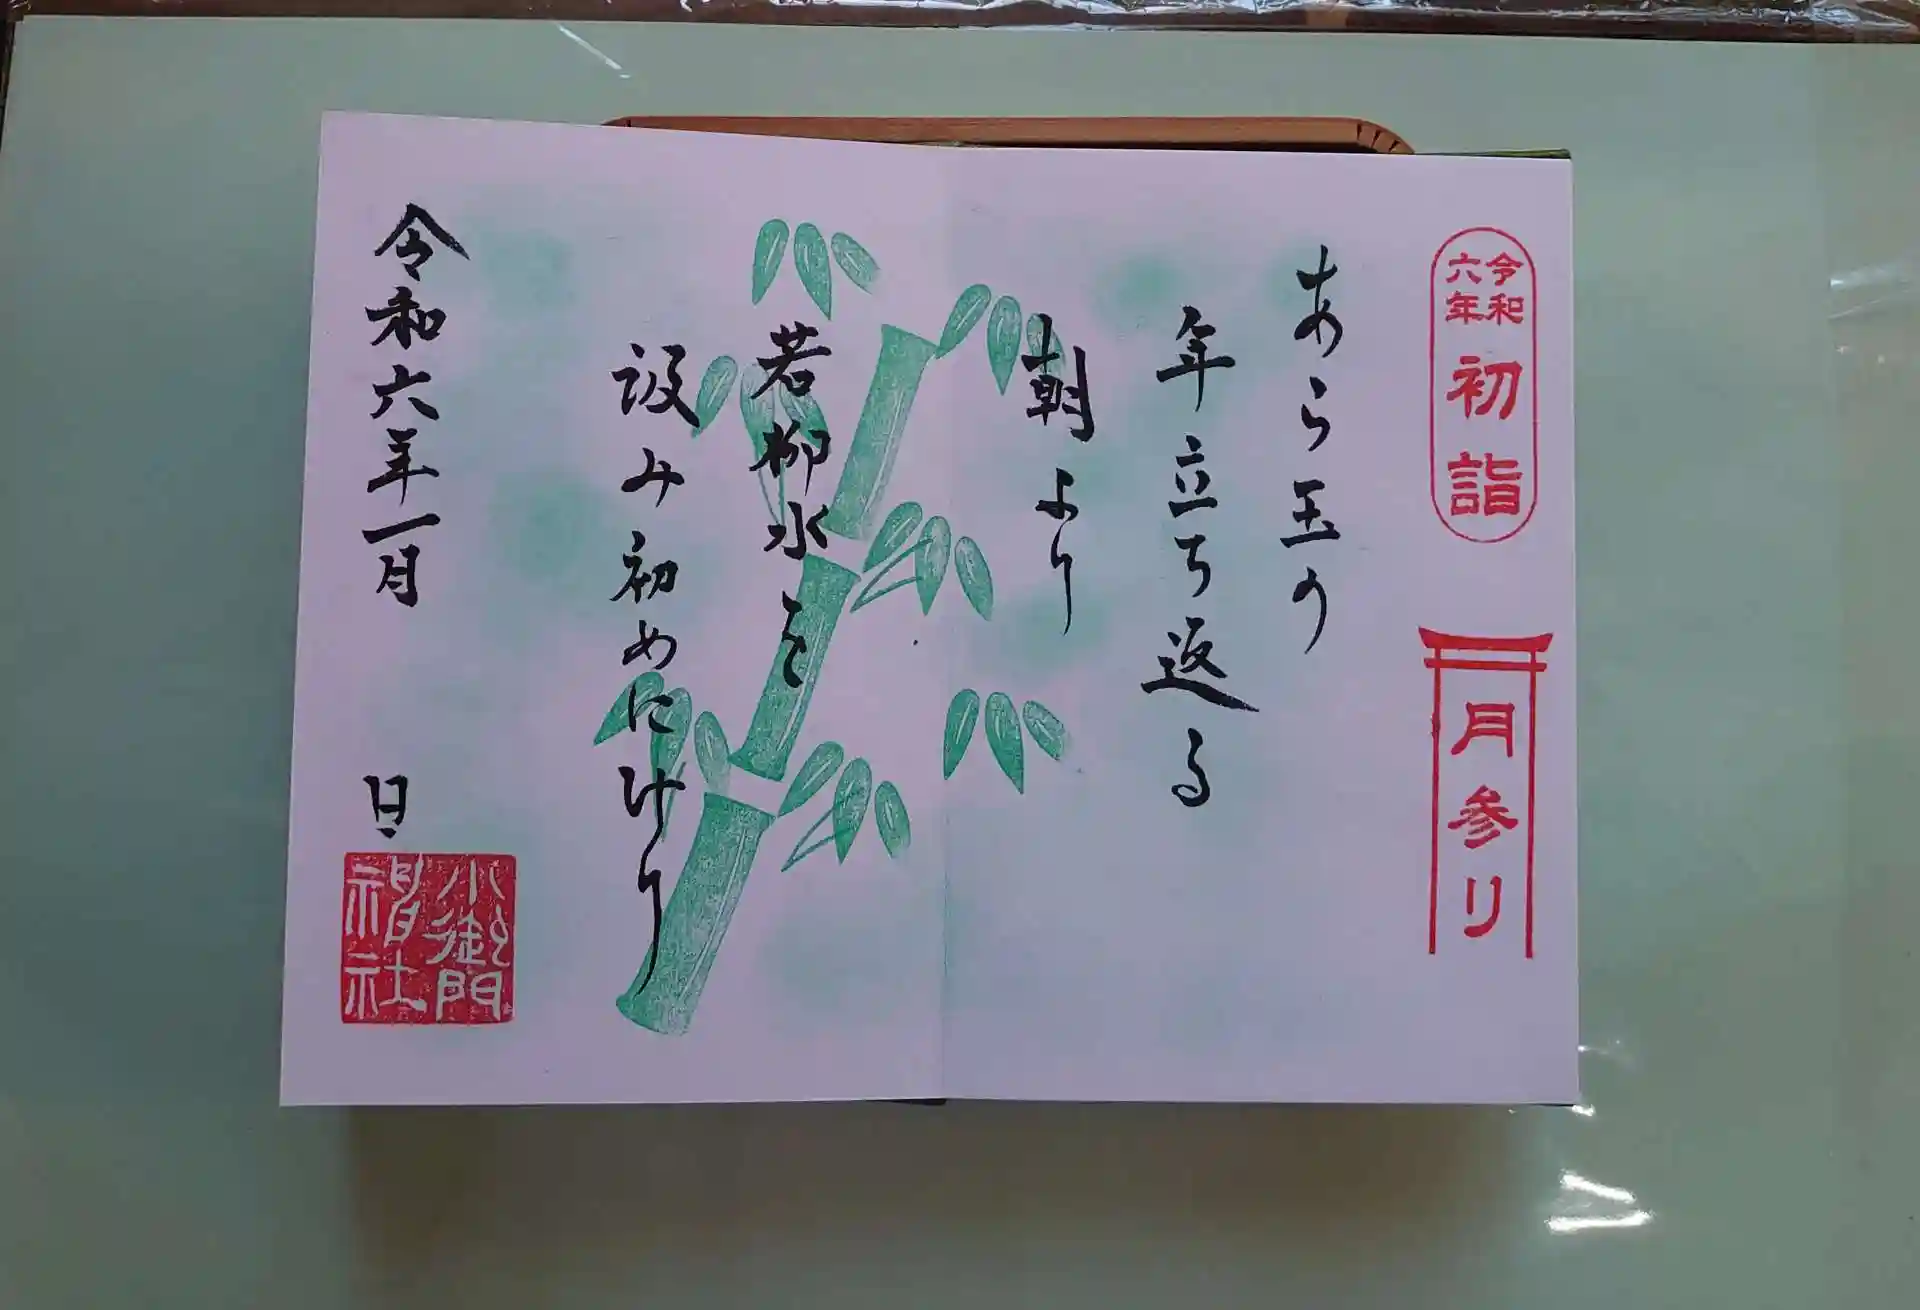 令和六年
初詣
月参り
あら玉の
年立ち返る
朝より
若柳水を
汲み初めにけり
令和六年一月　日
小御門神社